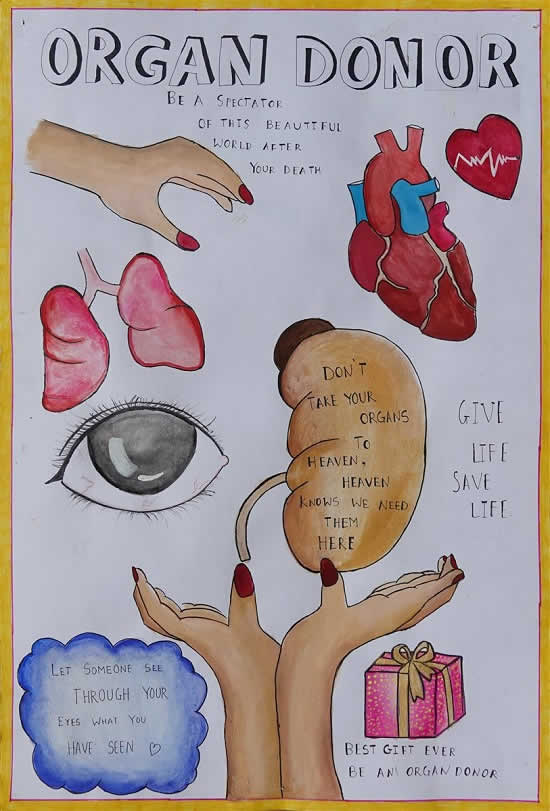 ORGAN DONOR
BE A SPECTATOR
OF THIS BEAUTIFUL
WORLD AFTER
YOUR DEATH
DON'T
TAKE YOUR
ORGANS
TO
HEAVEN,
HEAVEN
KNOWS WE NEED
THEM
HERE
GIVE
LIFE
SAVE
LIFE
LET SOMEONE SEE
THROUGH YOUR
EYES WHAT YOU
HAVE SEEN ♡
BEST GIFT EVER
BE AN ORGAN DONOR